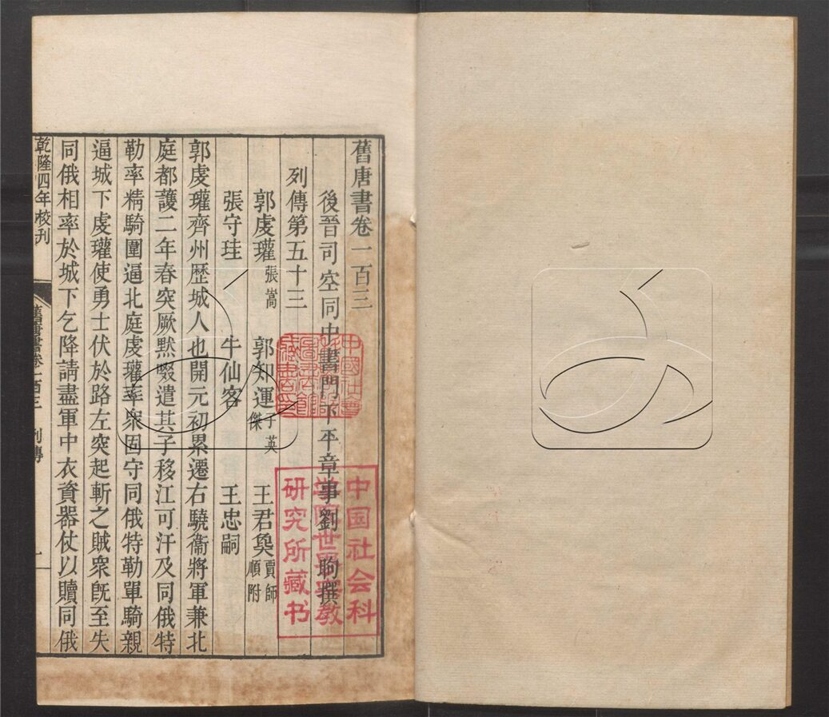 舊唐書卷一百三
後晉司空同中書門下平章事劉昫撰
列傳第五十三
郭虔瓘張嵩 郭知運子英傑 王君㚟賈師順附
張守珪 牛仙客 王忠嗣
郭虔瓘齊州歷城人也開元初累遷右驍衞將軍兼北
庭都護二年春突厥默啜遣其子移江可汗及同俄特
勒率精騎圍逼北庭虔瓘率衆固守同俄特勒單騎親
逼城下虔瓘使勇士伏於路左突起斬之賊衆旣至失
同俄相率於城下乞降請盡軍中衣資器仗以贖同俄
乾隆四年校刊
舊唐書卷一百三 列傳
一
中国社会科
学院世界宗教
研究所藏书